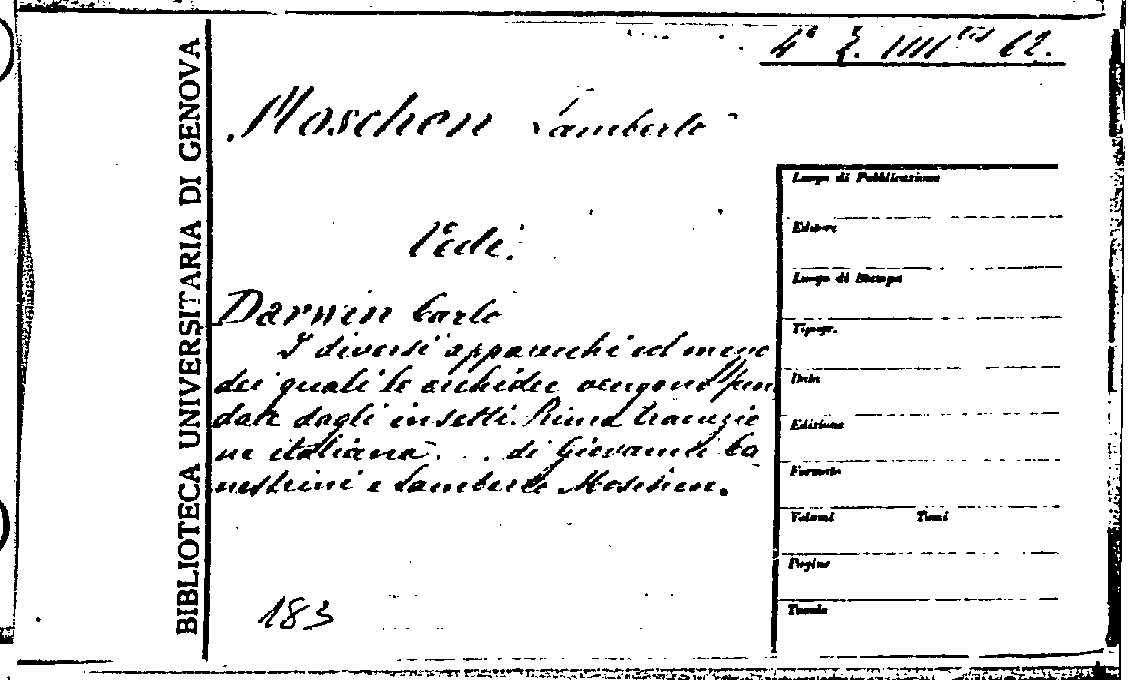 BIBLIOTECA UNIVERSITARIA DI GENOVA
Moschen Lamberto
Vedi:
Darwin Carlo
I diversi apparecchi col mezzo
dei quali le orchidee vengono fecon
date dagli insetti. Prima traduzio
ne italiana . . . di Giovanni Ca
nestrini e Lamberto Moschen.
183
Luogo di Pubblicazione
Editore
Luogo di Stampa
Tipogr.
Data
Edizione
Formato
Volumi Tomi
Pagine
Tavole